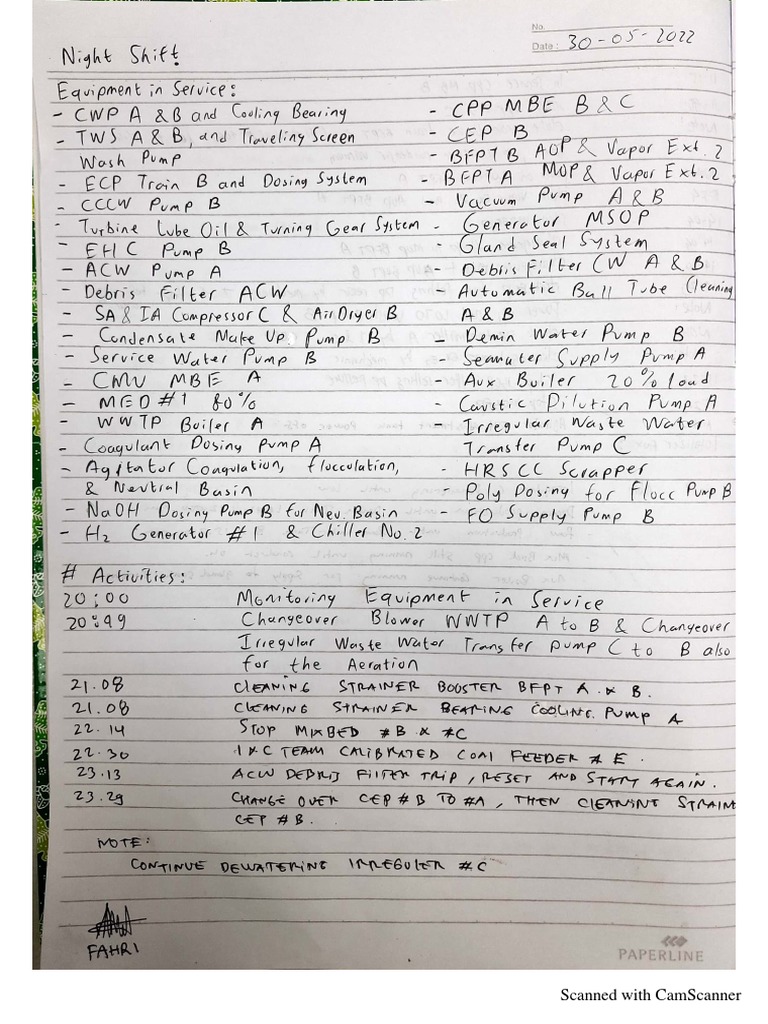 No.
Date : 30-05-2022
Night Shift.
Equipment in Service:
- CWP A & B and Cooling Bearing
- TWS A & B, and Traveling Screen
Wash Pump
- ECP Train B and Dosing System
- CCCW Pump B
- Turbine Lube Oil & Turning Gear System
- EHC Pump B
- ACW Pump A
- Debris Filter ACW
- SA & IA Compressor C & Air Dryer B
- Condensate Make Up Pump B
- Service Water Pump B
- CMU MBE A
- MED #1 80%
- WWTP Boiler A
- Coagulant Dosing Pump A
- Agitator Coagulation, flocculation,
& Neutral Basin
- NaOH Dosing Pump B for Neu. Basin
- H2 Generator #1 & Chiller No. 2
- CPP MBE B & C
- CEP B
- BFPT B AOP & Vapor Ext. 2
- BFPT A MOP & Vapor Ext. 2
- Vacuum Pump A & B
- Generator MSOP
- Gland Seal System
- Debris Filter CW A & B
- Automatic Ball Tube Cleaning
A & B
- Demin Water Pump B
- Seawater Supply Pump A
- Aux Boiler 20% load
- Caustic Dilution Pump A
- Irregular Waste Water
Transfer Pump C
- HRSCC Scrapper
- Poly Dosing for Flocc Pump B
- FO Supply Pump B
# Activities:
20:00 Monitoring Equipment in Service
20:49 Changeover Blower WWTP A to B & Changeover
Irregular Waste Water Transfer pump C to B also
for the Aeration
21.08 CLEANING STRAINER BOOSTER BFPT A & B.
21.08 CLEANING STRAINER BEARING COOLING PUMP A
22.14 STOP MIXBED #B & #C
22.30 I & C TEAM CALIBRATED COAL FEEDER # E.
23.13 ACW DEBRIS FILTER TRIP, RESET AND START AGAIN.
23.29 CHANGE OVER CEP #B TO #A, THEN CLEANING STRAIN
CEP #B.
NOTE:
CONTINUE DEWATERING IRREGULER #C
FAHRI
PAPERLINE
Scanned with CamScanner